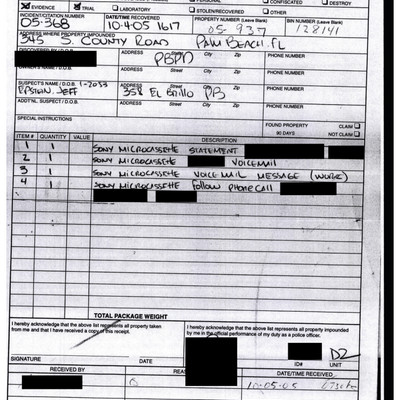 EVIDENCE TRIAL LABORATORY PERSONAL STOLEN/RECOVERED CONFISCATED OTHER DESTROY
INCIDENT/CITATION NUMBER DATE/TIME RECOVERED PROPERTY NUMBER (Leave Blank) BIN NUMBER (Leave Blank)
05-368 10-4-05 1617 05-937 128141
ADDRESS WHERE PROPERTY IMPOUNDED
345 S. COUNTY ROAD PALM BEACH, FL
DISCOVERED BY ADDRESS Street City Zip PHONE NUMBER
PBPD
ADDRESS Street City Zip PHONE NUMBER
SUSPECT'S NAME / D.O.B. 1-2053 ADDRESS Street City Zip PHONE NUMBER
EPSTEIN, JEFF 358 El Brillo PB
ADDT'NL SUSPECT / D.O.B. ADDRESS PHONE NUMBER
SPECIAL INSTRUCTIONS FOUND PROPERTY CLAIM
90 DAYS NOT CLAIM
ITEM # QUANTITY VALUE DESCRIPTION
1 1 SONY MICROCASSETTE STATEMENT
2 1 SONY MICROCASSETTE VOICEMAIL
3 1 SONY MICROCASSETTE VOICE MAIL MESSAGE (WORK)
4 1 SONY MICROCASSETTE Follow PHONE CALL
TOTAL PACKAGE WEIGHT
I hereby acknowledge that the above list represents all property taken from me and that I have received a copy of this receipt.
I hereby acknowledge that the above list represents all property impounded by me in the official performance of my duty as a police officer.
D2
SIGNATURE DATE ID# UNIT
RECEIVED BY REASON DATE/TIME RECEIVED
10-05-05